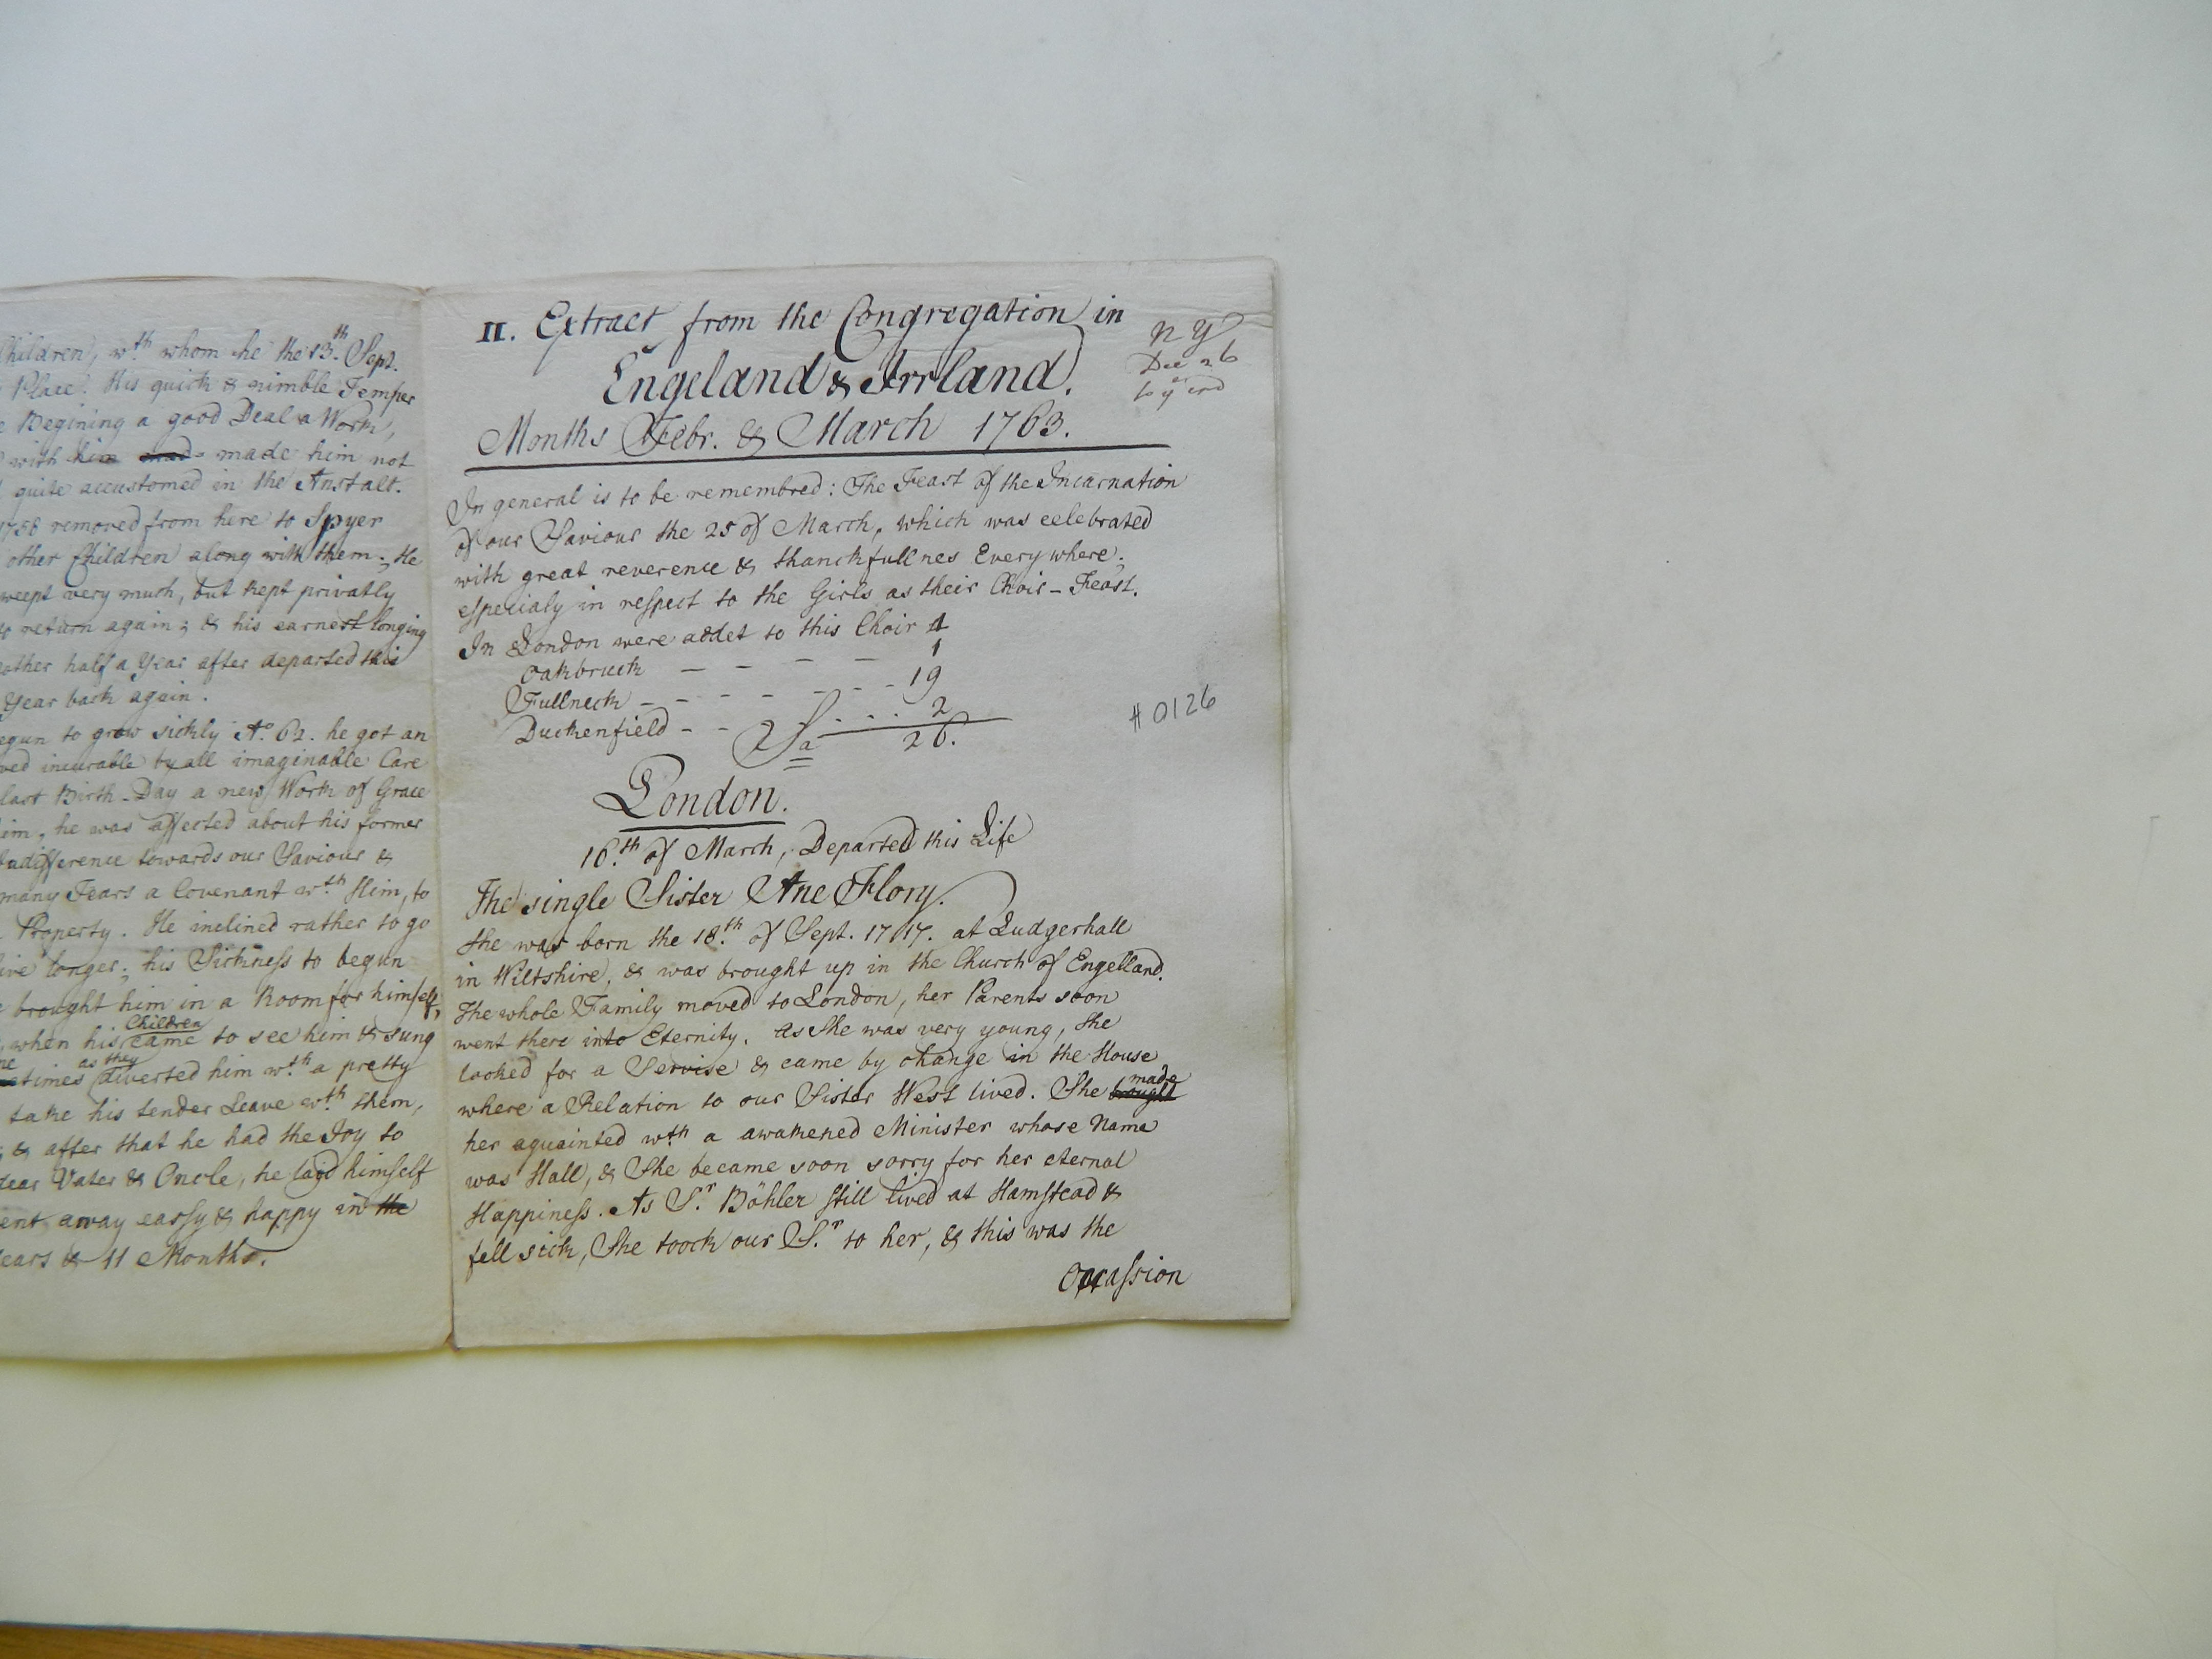 Children, wth whom he the 13th Sept.
Place. His quick & nimble Temper
Begining a good Deal a Work,
with him mad made him not
quite accustomed in the Anstalt.
1758 removed from here to Spyer
other Children along with them; He
weept very much, but kept privatly
to return again; & his earnest longing
other half a Year after departed this
Year back again.
begun to grow sickly Ao. 62. he got an
incurable by all imaginable Care
last Birth-Day a new Work of Grace
him, he was affected about his former
Indifference towards our Saviour &
many Tears a Covenant wth Him, to
Property. He inclined rather to go
live longer; his Sickness to begun
brought him in a Room for himself,
Children
when his came to see him & sung
as they
diverted him wth a pretty
take his tender Leave wth them,
& after that he had the Joy to
dear Vater & Oncle, he layd himself
went away eassy & happy in the
Years & 11 Months.
II. Extract from the Congregation in
Engeland & Irrland.
Months Febr. & March 1763.
N Y
Dec 26
to ye end
In general is to be remembred: The Feast of the Incarnation
of our Saviour the 25 of March, which was celebrated
with great reverence & thanckfullnes Every where;
especialy in respect to the Girls as their Choir-Feast.
In London were addet to this Choir 4
Oakbruck — — — — 1
Fullneck - - - - - - - 19
Duckenfield - - - - - 2
Sa 26.
# 0126
London.
16th of March, Departed this Life
The single Sister Ane Flory.
She was born the 18th of Sept. 1717. at Ludgerhall
in Wiltshire, & was brought up in the Church of Engelland.
The whole Family moved to London, her Parents soon
went there into Eternity. As She was very young, She
looked for a Servise & came by change in the House
where a Relation to our Sister West lived. She brought made
her aquainted wth a awakened Minister whose Name
was Hall, & She became soon sorry for her eternal
Happiness. As Sr Böhler still lived at Hamstead &
fell sick, She toock our Sr to her, & this was the
Occassion